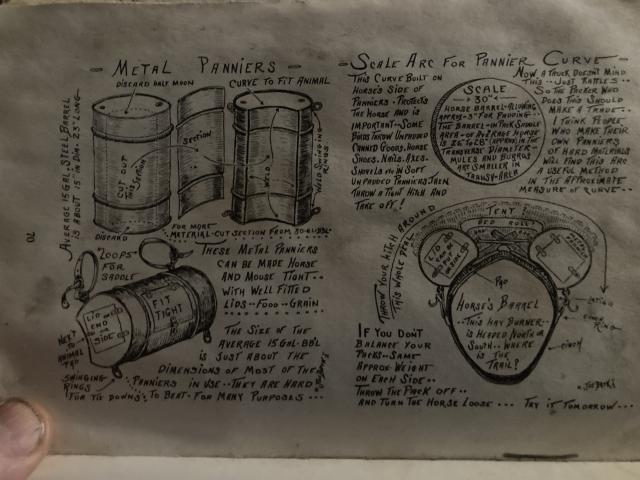 - METAL PANNIERS -
DISCARD HALF MOON
CURVE TO FIT ANIMAL
AVERAGE 15 GAL. STEEL BARREL
IS ABOUT 15" IN DIA. - 23" LONG
CUT OUT
THIS SECTION
SECTION
WELD
WELD SWINGING
RINGS
DISCARD
FOR MORE
MATERIAL-CUT SECTION FROM 30-GL-BBL
70
"LOOPS"
FOR
SADDLE
LID ON
END
OR
SIDE
FIT
TIGHT
NEXT
TO
ANIMAL
PAD
SWINGING
RINGS
FOR TIE DOWNS
THESE METAL PANNIERS
CAN BE MADE HORSE
AND MOUSE TIGHT..
WITH WELL FITTED
LIDS--FOOD--GRAIN
THE SIZE OF THE
AVERAGE 15 GAL-BBL
IS JUST ABOUT THE
DIMENSIONS OF MOST OF THE
PANNIERS IN USE--THEY ARE HARD
TO BEAT-FOR MANY PURPOSES...
-SCALE ARC FOR PANNIER CURVE-
THIS CURVE BUILT ON
HORSE'S SIDE OF
PANNIERS - PROTECTS
THE HORSE AND IS
IMPORTANT--SOME
BIRDS THROW UNPADDED
CANNED GOODS, HORSE
SHOES, NAILS, AXES,
SHOVELS IN SOFT
UNPADDED PANNIERS, THEN
THROW A TIGHT HITCH AND
TAKE OFF!
SCALE
30"
HORSE BARREL-ALLOWING
APPROX-3" FOR PADDING-
THE BARREL-IN PACK SADDLE
AREA-OF AVERAGE HORSE
IS 26" TO 28" (APPROX) IN THE
TRANSVERSE DIAMETER-
MULES AND BURROS
ARE SMALLER IN
TRANSV-AREA
NOW A TRUCK DOESN'T MIND
THIS--JUST RATTLES--
SO THE PACKER WHO
DOES THIS SHOULD
MAKE A TRADE--
I THINK PEOPLE
WHO MAKE THEIR
OWN PANNIERS
OF HARD MATERIALS
WILL FIND THIS ARC
A USEFUL METHOD
IN THE APPROXIMATE
MEASURE OF CURVE--
THROW YOUR HITCH AROUND
THIS WHOLE DEAL
TENT
BED ROLL
LID
CAN BE
PAD
HORSE'S BARREL
..THIS HAY BURNER..
IS HEADED NORTH OR
SOUTH--WHERE
IS THE
TRAIL?
RING
CINCH
IF YOU DON'T
BALANCE YOUR
PACKS--SAME
APPROX-WEIGHT
ON EACH SIDE--
THROW THE PACK OFF--
AND TURN THE HORSE LOOSE... TRY IT TOMORROW...